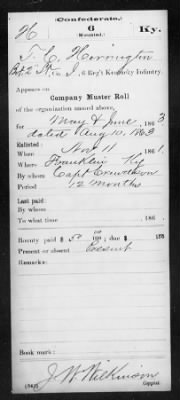 Confederate.
H 6 Ky.
(Mounted.)
T. C. Herrington
Co. , 6 Reg't Kentucky Infantry.
Appears on
Company Muster Roll
of the organization named above,
for May & June, 1863
dated Aug 10, 1863
Enlisted:
When Nov 11, 1861.
Where Franklin Ky
By whom Capt
Period 12 Months
Last paid:
By whom
To what time , 186 .
Bounty paid $ 50 100; due $ 100
Present or absent Present
Remarks:
Book mark:
J. W. Wilkinson
(642) Copyist.